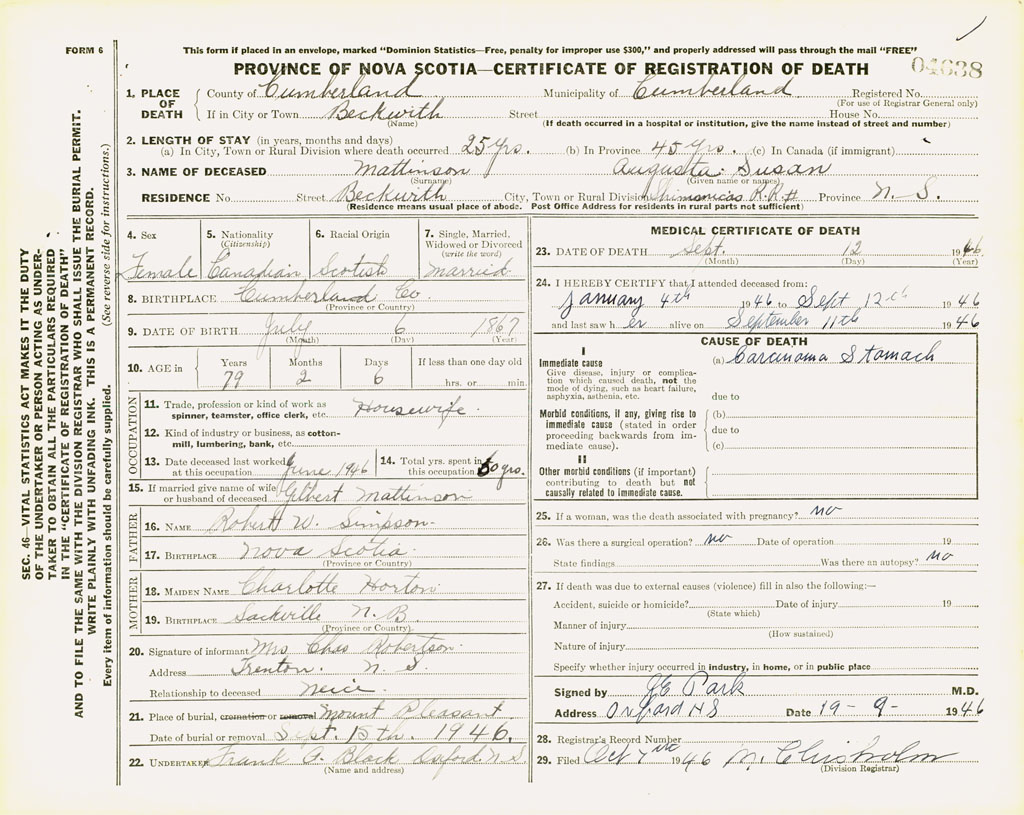 FORM 6
This form if placed in an envelope, marked "Dominion Statistics—Free, penalty for improper use $300," and properly addressed will pass through the mail "FREE"
PROVINCE OF NOVA SCOTIA—CERTIFICATE OF REGISTRATION OF DEATH
04638
1. PLACE OF DEATH County of Cumberland Municipality of Cumberland Registered No.
(For use of Registrar General only)
If in City or Town Beckwith Street House No.
(Name) (If death occurred in a hospital or institution, give the name instead of street and number)
2. LENGTH OF STAY (in years, months and days)
(a) In City, Town or Rural Division where death occurred 25 yrs. (b) In Province 45 yrs. (c) In Canada (if immigrant)
3. NAME OF DECEASED Mattinson Augusta Susan
(Surname) (Given name or names)
RESIDENCE No. Street Beckwith City, Town or Rural Division R.R. Province N.S.
(Residence means usual place of abode. Post Office Address for residents in rural parts not sufficient)
4. Sex 5. Nationality (Citizenship) 6. Racial Origin 7. Single, Married, Widowed or Divorced (write the word)
Female Canadian Scotish Married
8. BIRTHPLACE Cumberland Co.
(Province or Country)
9. DATE OF BIRTH July 6 1867
(Month) (Day) (Year)
10. AGE in Years Months Days If less than one day old
79 2 6 hrs. or min.
OCCUPATION
11. Trade, profession or kind of work as spinner, teamster, office clerk, etc. Housewife
12. Kind of industry or business, as cotton-mill, lumbering, bank, etc.
13. Date deceased last worked at this occupation June 1946 14. Total yrs. spent in this occupation 60 yrs.
15. If married give name of wife or husband of deceased Gilbert Mattinson
FATHER
16. NAME Robert W. Simpson
17. BIRTHPLACE Nova Scotia
(Province or Country)
MOTHER
18. MAIDEN NAME Charlotte Horton
19. BIRTHPLACE Sackville N.B.
(Province or Country)
20. Signature of informant Mrs Chas Robertson
Address Trenton. N.S.
Relationship to deceased neice
21. Place of burial, cremation or removal Mount Pleasant
Date of burial or removal Sept. 15th. 1946.
22. UNDERTAKER Frank A. Black Oxford. N.S.
(Name and address)
MEDICAL CERTIFICATE OF DEATH
23. DATE OF DEATH Sept. 12 1946
(Month) (Day) (Year)
24. I HEREBY CERTIFY that I attended deceased from:
January 4th 1946 to Sept 12th 1946
and last saw her alive on September 11th 1946
CAUSE OF DEATH
I
Immediate cause (a) Carcinoma Stomach
Give disease, injury or complication which caused death, not the mode of dying, such as heart failure, asphyxia, asthenia, etc.
due to
Morbid conditions, if any, giving rise to immediate cause (stated in order proceeding backwards from immediate cause).
(b)
due to
(c)
II
Other morbid conditions (if important) contributing to death but not causally related to immediate cause.
25. If a woman, was the death associated with pregnancy? No
26. Was there a surgical operation? No Date of operation 19
State findings Was there an autopsy? No
27. If death was due to external causes (violence) fill in also the following:—
Accident, suicide or homicide? Date of injury 19
(State which)
Manner of injury
(How sustained)
Nature of injury
Specify whether injury occurred in industry, in home, or in public place
Signed by J E Park M.D.
Address Oxford N S Date 19-9-1946
28. Registrar's Record Number
29. Filed Oct 7 1946 M. Chisholm
(Division Registrar)
SEC. 46—VITAL STATISTICS ACT MAKES IT THE DUTY
OF THE UNDERTAKER OR PERSON ACTING AS UNDER-
TAKER TO OBTAIN ALL THE PARTICULARS REQUIRED
IN THE "CERTIFICATE OF REGISTRATION OF DEATH"
AND TO FILE THE SAME WITH THE DIVISION REGISTRAR WHO SHALL ISSUE THE BURIAL PERMIT.
WRITE PLAINLY WITH UNFADING INK. THIS IS A PERMANENT RECORD.
Every item of information should be carefully supplied. (See reverse side for instructions.)